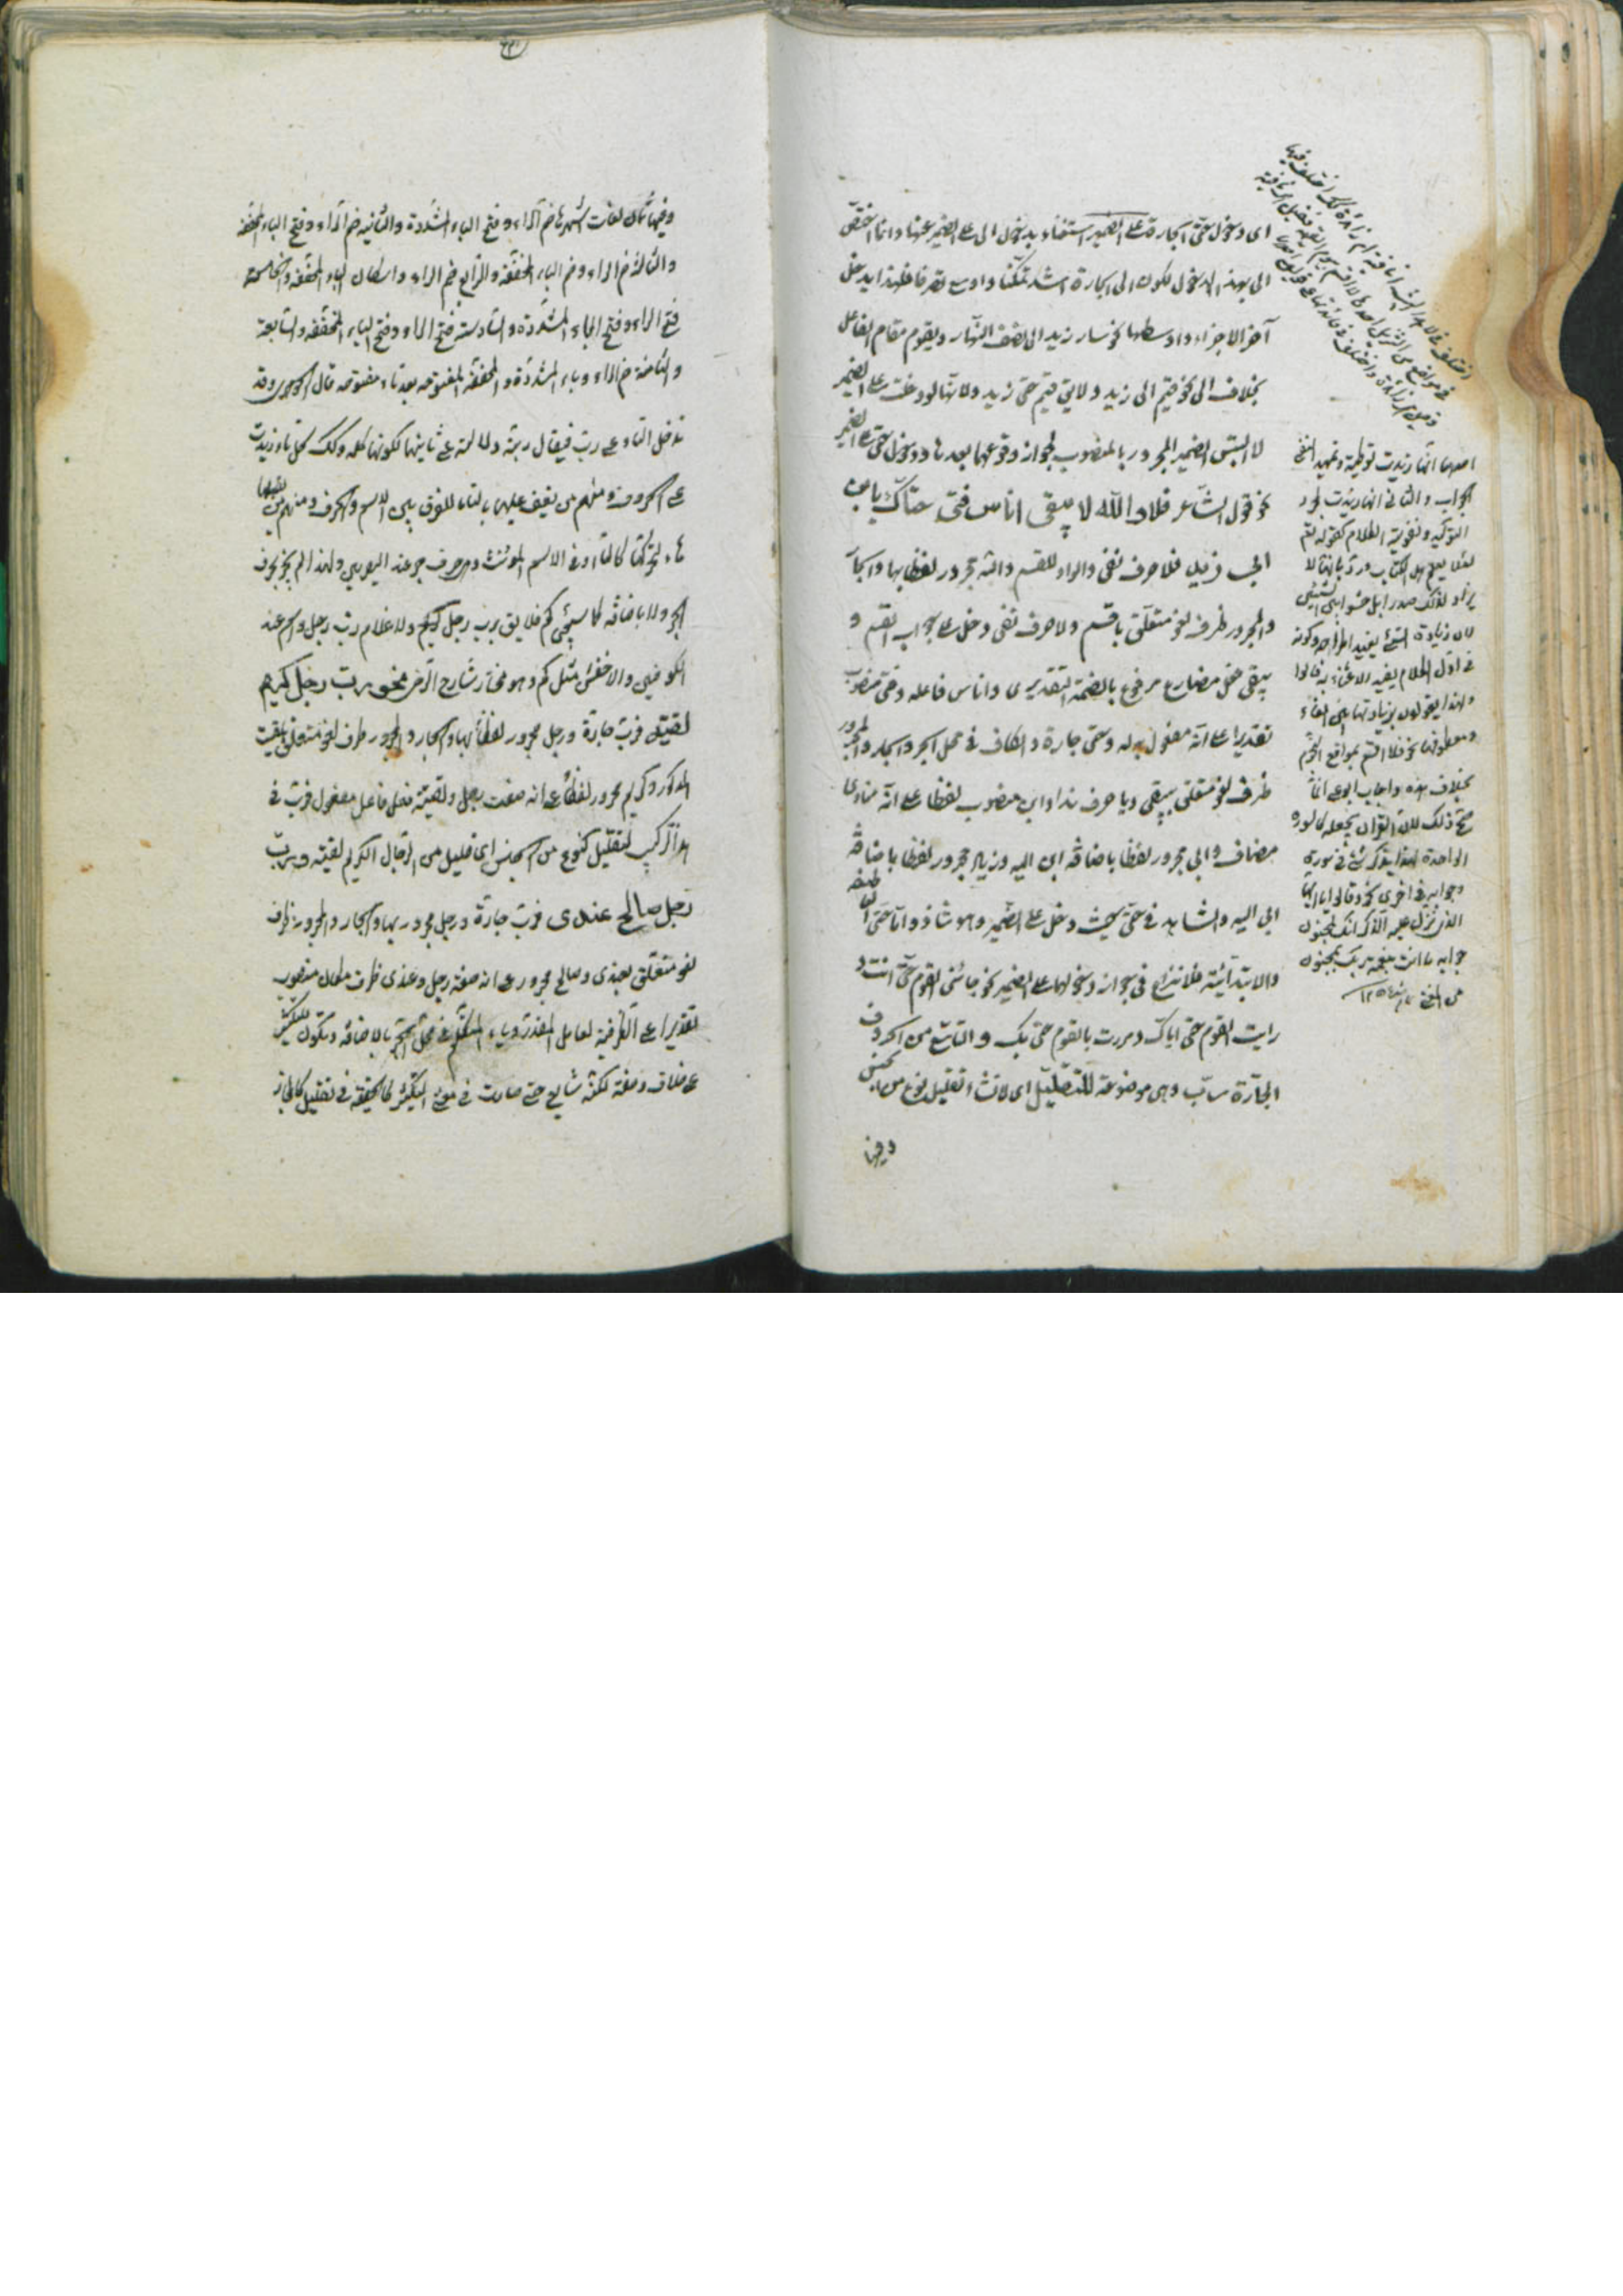 اى دخول حتى الجارة على الضمير استغناء بدخول الى على الضمير عنها وانما اختص
الى بهذا الدخول لكون الى الجارة اشد تمكنا واوسع تصرفا فلهذا يدخل
آخر الاجزاء واوسطها نحو سار زيد الى نصف النهار ويقوم مقام الفاعل
بخلاف الى نحو قيم الى زيد ولا يق قيم حتى زيد ولانها لو دخلت على الضمير
لالتبس الضمير المجرور بالمنصوب لجواز وقوعهما بعدها ودخول حتى على الضمير
نحو قول الشاعر فلا والله لا يبقى اناس فتى حتاك يا ابن
ابى زيد فلا حرف نفى والواو للقسم والله مجرور لفظا بها والجار
والمجرور ظرف لغو متعلق باقسم ولا حرف نفى دخل على جواب القسم و
يبقى فعل مضارع مرفوع بالضمة التقديرى واناس فاعله وفتى منصوب
تقديرا على انه مفعول له وحتى جارة والكاف فى محل الجر والجار والمجرور
ظرف لغو متعلق بيبقى ويا حرف ندا وابن منصوب لفظا على انه منادى
مضاف وابى مجرور لفظا باضافة ابن اليه وزيد مجرور لفظا باضافة
ابى اليه والشاهد فى حتى حيث دخل على الضمير وهو شاذ واما حتى العاطفة
والابتدائية فلا نزاع فى جواز دخولهما على الضمير نحو جائنى القوم حتى انت و
رايت القوم حتى اياك ومررت بالقوم حتى بك والتاسع من الحروف
الجارة رب وهى موضوعة للتقليل اى لانشاء تقليل نوع من جنس
وفيها
احدهما انها زيدت توطية وتمهيدا لنفى
الجواب والثانى انها زيدت لمجرد
التوكيد وتقوية الكلام كقوله تعالى
لئلا يعلم اهل الكتاب ورد بانها لا
يزاد لذلك صدرا بل حشوا بين الشيئين
لان زيادة الشئ يفيد اطراحه وكونه
فى اول الكلام يفيد الاعتناء به قالوا
ولهذا يقولون بزيادتها بين الفاء
ومعطوفها نحو فلا اقسم بمواقع النجوم
بخلاف هذه واجاب ابو على انما
صح ذلك لان القرآن يجعله كالسورة
الواحدة لهذا يذكر شئ فى سورة
وجوابه فى اخرى نحو وقالوا يا ايها
الذى نزل عليه الذكر انك لمجنون
جوابه ما انت بنعمة ربك بمجنون
من المغنى
وفيها ثمان لغات اشهرها ضم الراء وفتح الباء المشددة والثانية ضم الراء وفتح الباء المخففة
والثالثة ضم الراء وضم الباء المخففة والرابع ضم الراء واسكان الباء المخففة والخامسة
فتح الراء وفتح الباء المشددة والسادسة فتح الراء وفتح الباء المخففة والسابعة
والثامنة ضم الراء وباء المشددة والمخففة المفتوحة بعد تاء مفتوحة قال الجوهرى وقد
تدخل التاء على رب فيقال ربة دلالة على تانيثها لكونها كلمة وكك كل تاء زيدت
على الحروف ومنهم من يقف عليها بالتاء للفرق بين الاسم والحرف ومنهم من يقلبها
هاء كالتاء فى الاسم المؤنث وحرف جر عند البصريين ولهذا لم يجز بحرف
الجر ولا باضافة كما سيجئ كم فلا يق برب رجل كريم ولا غلام رب رجل واسم عند
الكوفيين والاخفش مثل كم وهو مختار شارح الرضى نحو رب رجل كريم
لقيته فرب جارة ورجل مجرور لفظا بها والجار والمجرور ظرف لغو متعلق بلقيت
المذكور وكريم مجرور لفظا على انه صفة رجل ولقيته فعل فاعل مفعول فرب فى
هذا التركيب لتقليل نوع من الجنس اى قليل من الرجال الكريم لقيته ورب
رجل صالح عندى فرب جارة ورجل مجرور بها والجار والمجرور ظرف
لغو متعلق بعندى وصالح مجرور على انه صفة رجل وعندى ظرف مكان منصوب
تقديرا على الظرفية لعامل المقدر وياء المتكلم فى محل الجر بالاضافة وتكون للتكثير
على خلاف وضعه لكنه شايع حتى صارت فى معنى التكثير كالحقيقة فى تقليل كالمجاز